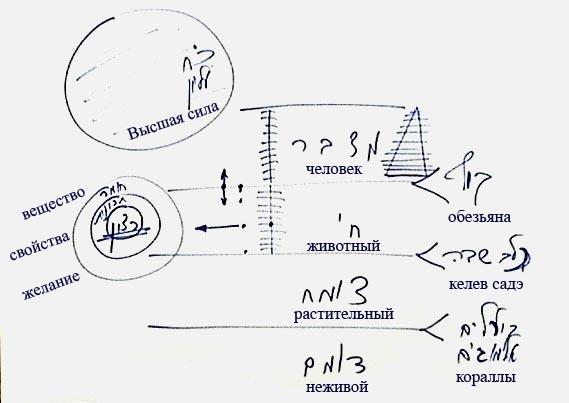 כוח
עליון
Высшая сила
מדבר
человек
קוף
обезьяна
вещество
свойства
желание
חומר
תכונות
רצון
חי
животный
כלב שדה
келев садэ
צומח
растительный
אלמוגים
кораллы
דומם
неживой